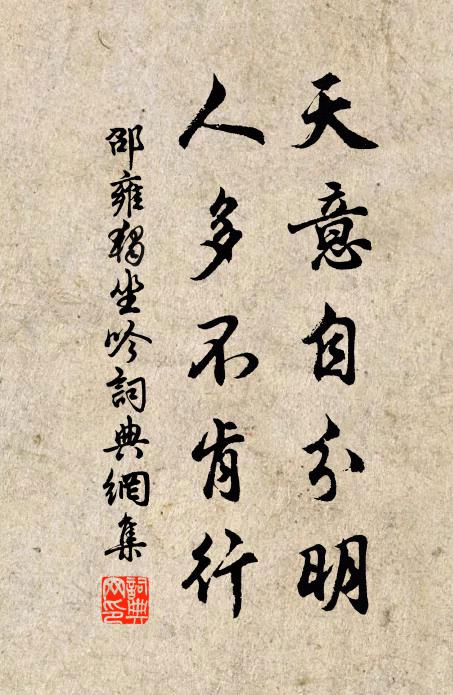 天意自分明
人多不肯行
邵雍獨坐吟詞典網集
詞典
网印